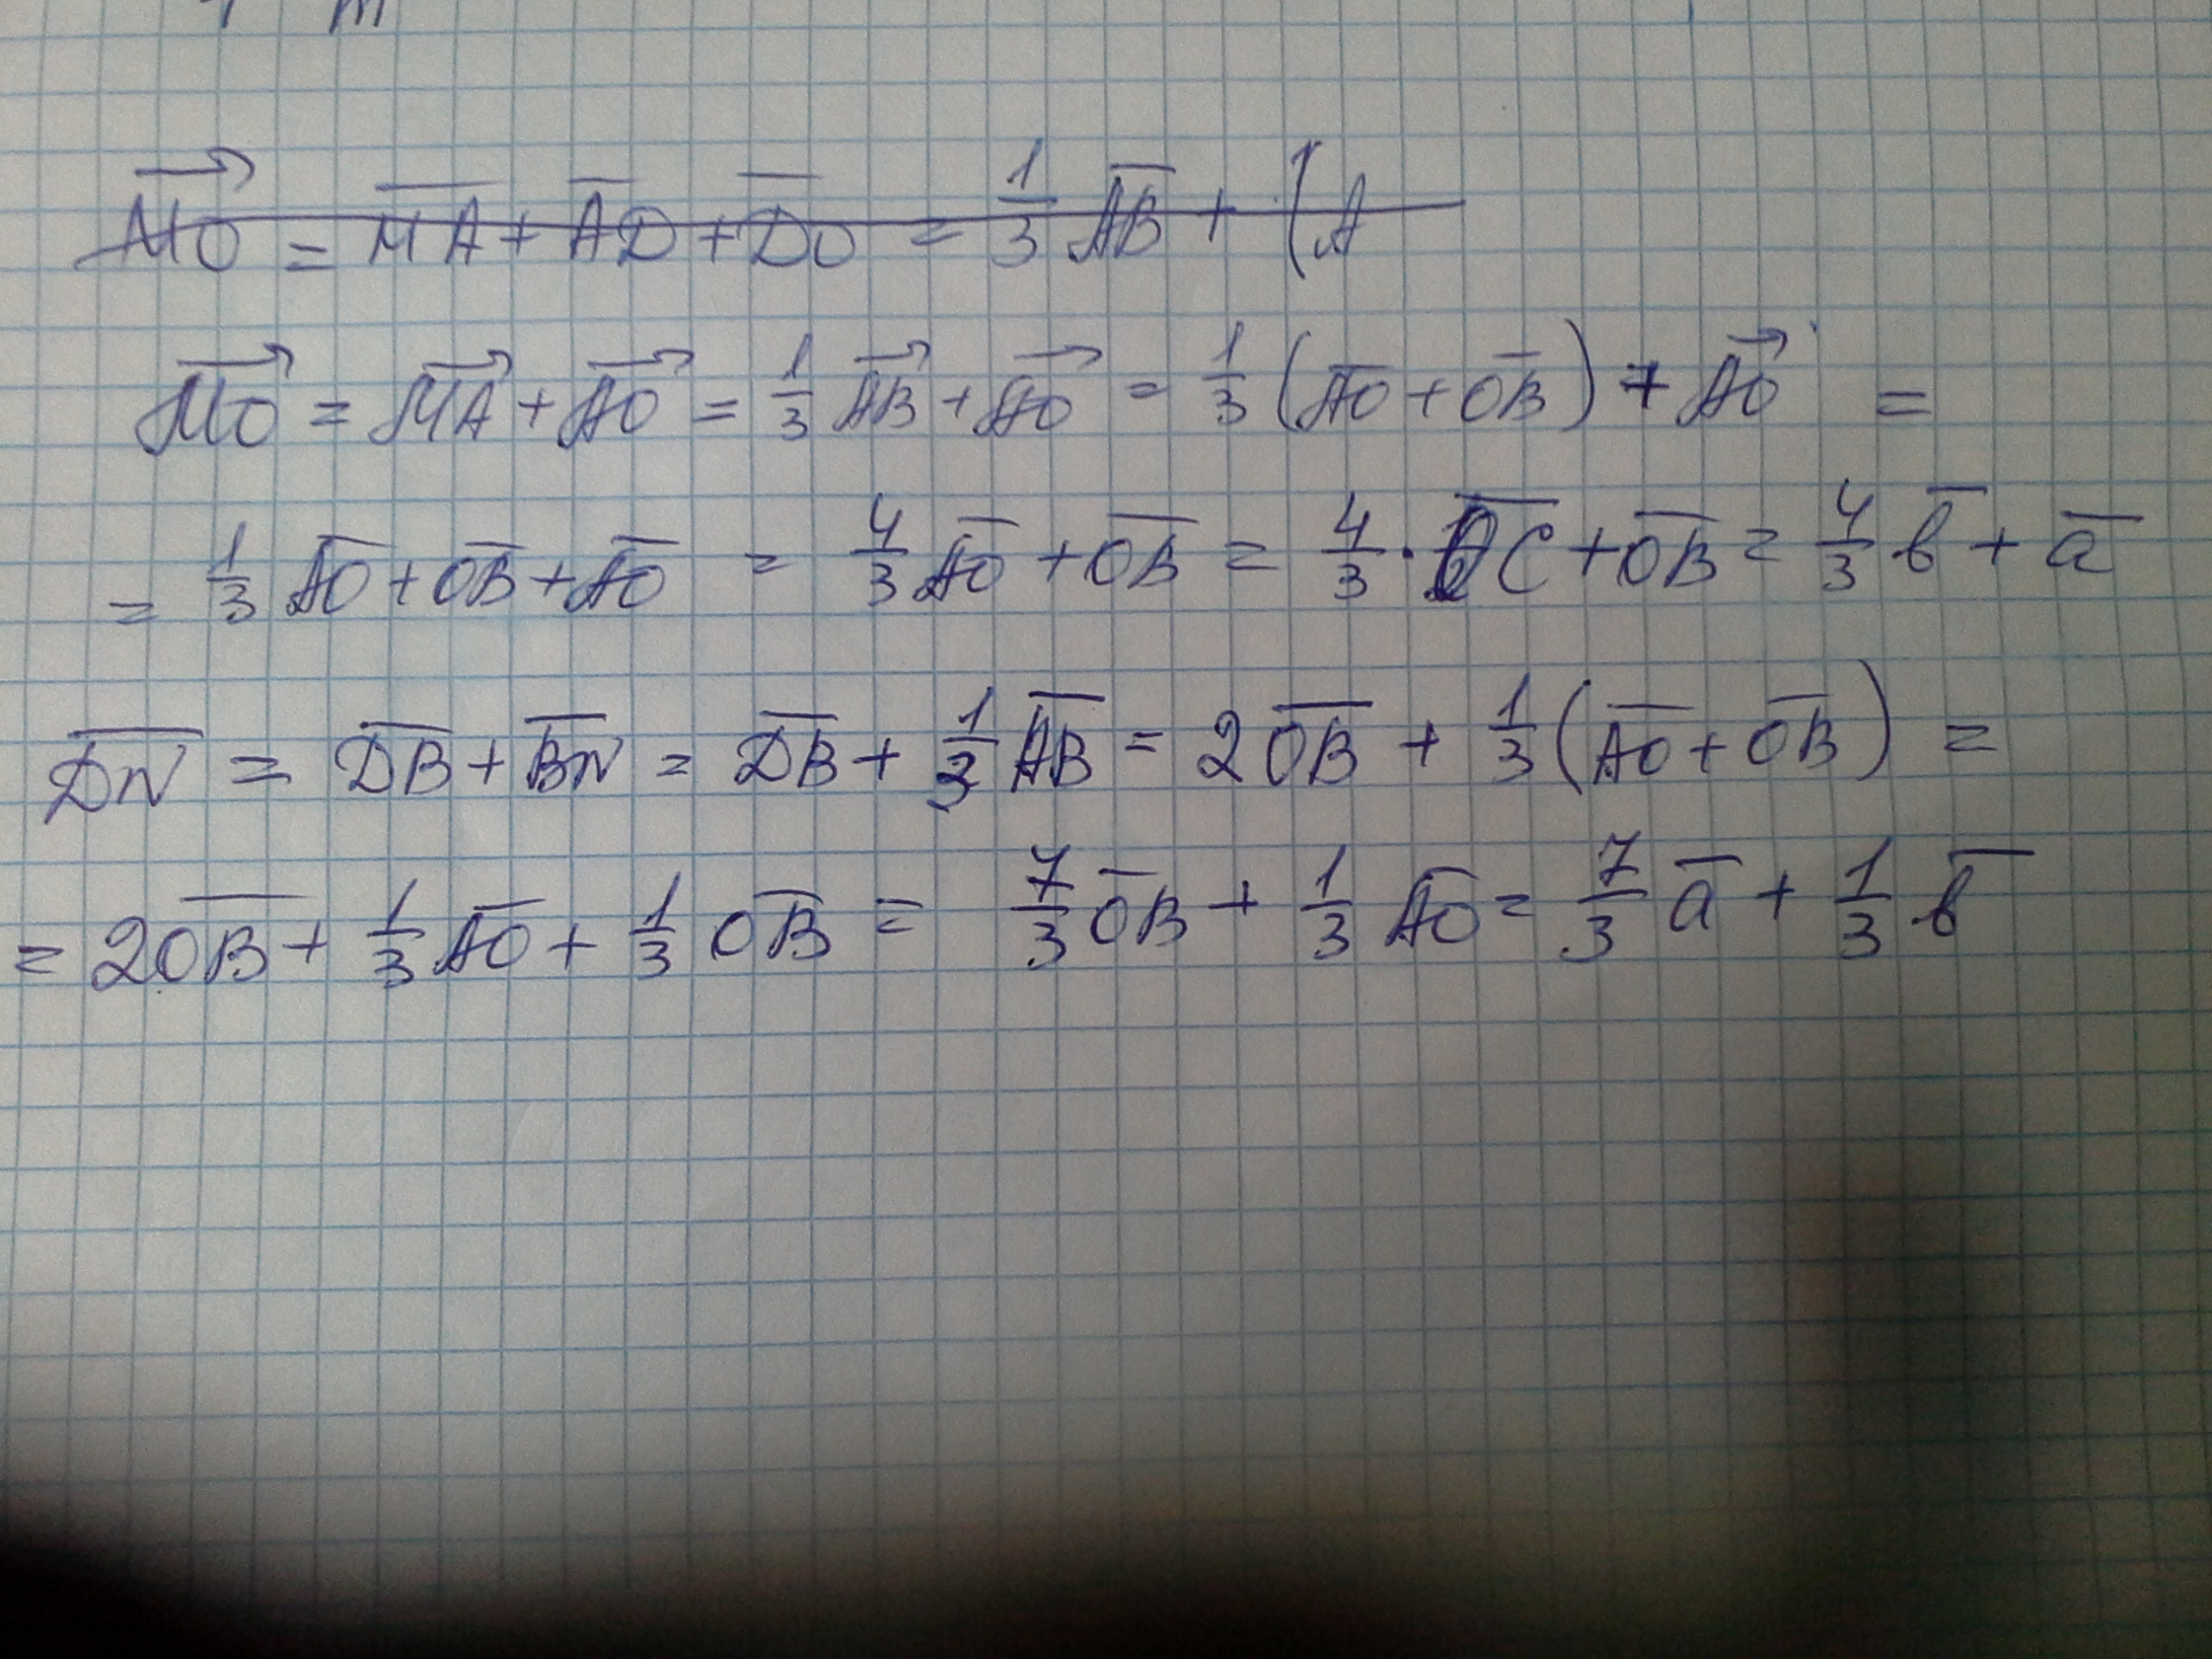 m
MO = MA + AD + DO = 1/3 AB + (A
MO = MA + AO = 1/3 AB + AO = 1/3 (AO + OB) + AO =
= 1/3 AO + OB + AO = 4/3 AO + OB = 4/3 · OC + OB = 4/3 в + a
DN = DB + BN = DB + 1/3 AB = 2OB + 1/3 (AO + OB) =
= 2OB + 1/3 AO + 1/3 OB = 7/3 OB + 1/3 AO = 7/3 a + 1/3 в